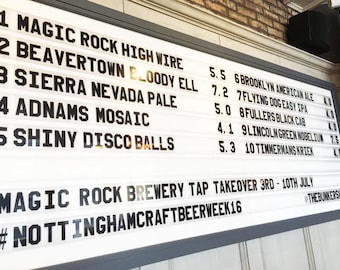 1 MAGIC ROCK HIGH WIRE 5.5 6 BROOKLYN AMERICAN ALE
2 BEAVERTOWN BLOODY ELL 7.2 7 FLYING DOG EASY IPA
3 SIERRA NEVADA PALE 5.0 8 FULLERS BLACK CAB
4 ADNAMS MOSAIC 4.1 9 LINCOLN GREEN
5 SHINY DISCO BALLS 5.3 10 TIMMERMANS KRIEK
MAGIC ROCK BREWERY TAP TAKEOVER 3RD - 10TH JULY
#NOTTINGHAMCRAFTBEERWEEK16